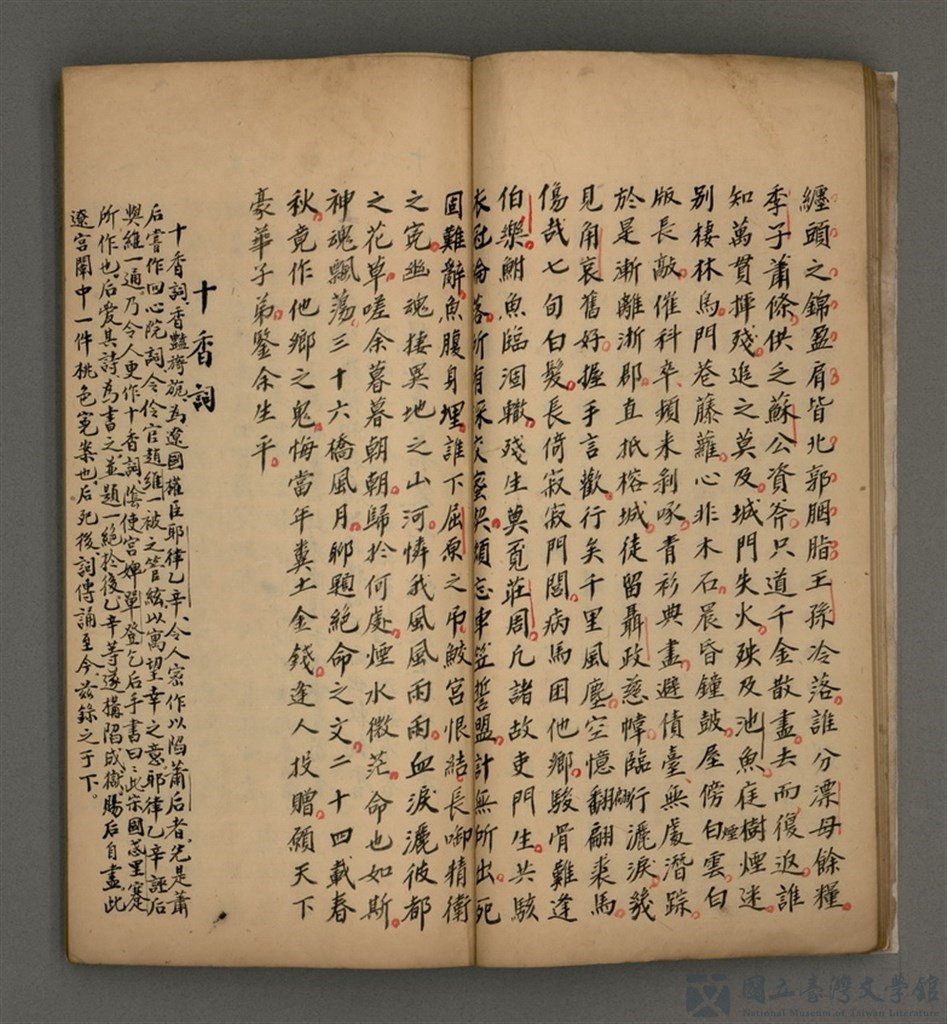 纏頭之錦盈肩皆北郭胭脂王孫冷落誰分漂母餘糧
季子蕭條供乏蘇公資斧只道千金散盡去而復返誰
知萬貫揮殘追之莫及城門失火殃及池魚庭樹煙迷
別棲林烏門巷藤蘿心非木石晨昏鐘鼓屋傍白雲白
版長敲催科卒頻來剝啄青衫典盡避債臺無處潛踪
於是漸離浙郡直抵榕城徒留聶政慈幃臨行灑淚幾
見角哀舊好握手言歡行矣千里風塵空憶翩翩裘馬
傷哉七旬白髮長倚寂寂門閭病馬困他鄉駿骨難逢
伯樂鮒魚臨涸轍殘生奠覓莊周凡諸故吏門生共駭
計無所出死
固難辭魚腹身埋誰下屈原之吊鮫宮恨結長啣精衛
之寃幽魂棲異地之山河憐我風風雨雨血淚灑彼都
之花草嗟余暮暮朝朝歸於何處煙水微茫命也如斯
神魂飄蕩三十六橋風月聊題絕命之文二十四載春
秋竟作他鄉之鬼悔當年糞土金錢逢人投贈願天下
豪華子弟鑒余生平
十香詞
十香詞、香豔旖旎、為遼國權臣耶律乙辛、令人密作以陷蕭后者、先是蕭
后嘗作回心院詞、令伶官趙維一被之管絃、以寓望幸之意、耶律乙辛誣后
與維一通、乃令人更作十香詞、陰使宮婢單登乞后手書曰、此宋國忒里蹇
所作也、后愛其詩、為書之並題一絕於後、乙辛等遂構陷成獄、賜后自盡、此
遼宮闈中一件桃色寃案也、后死後詞傳誦至今、茲錄之于下。
國立臺灣文學館
National Museum of Taiwan Literature